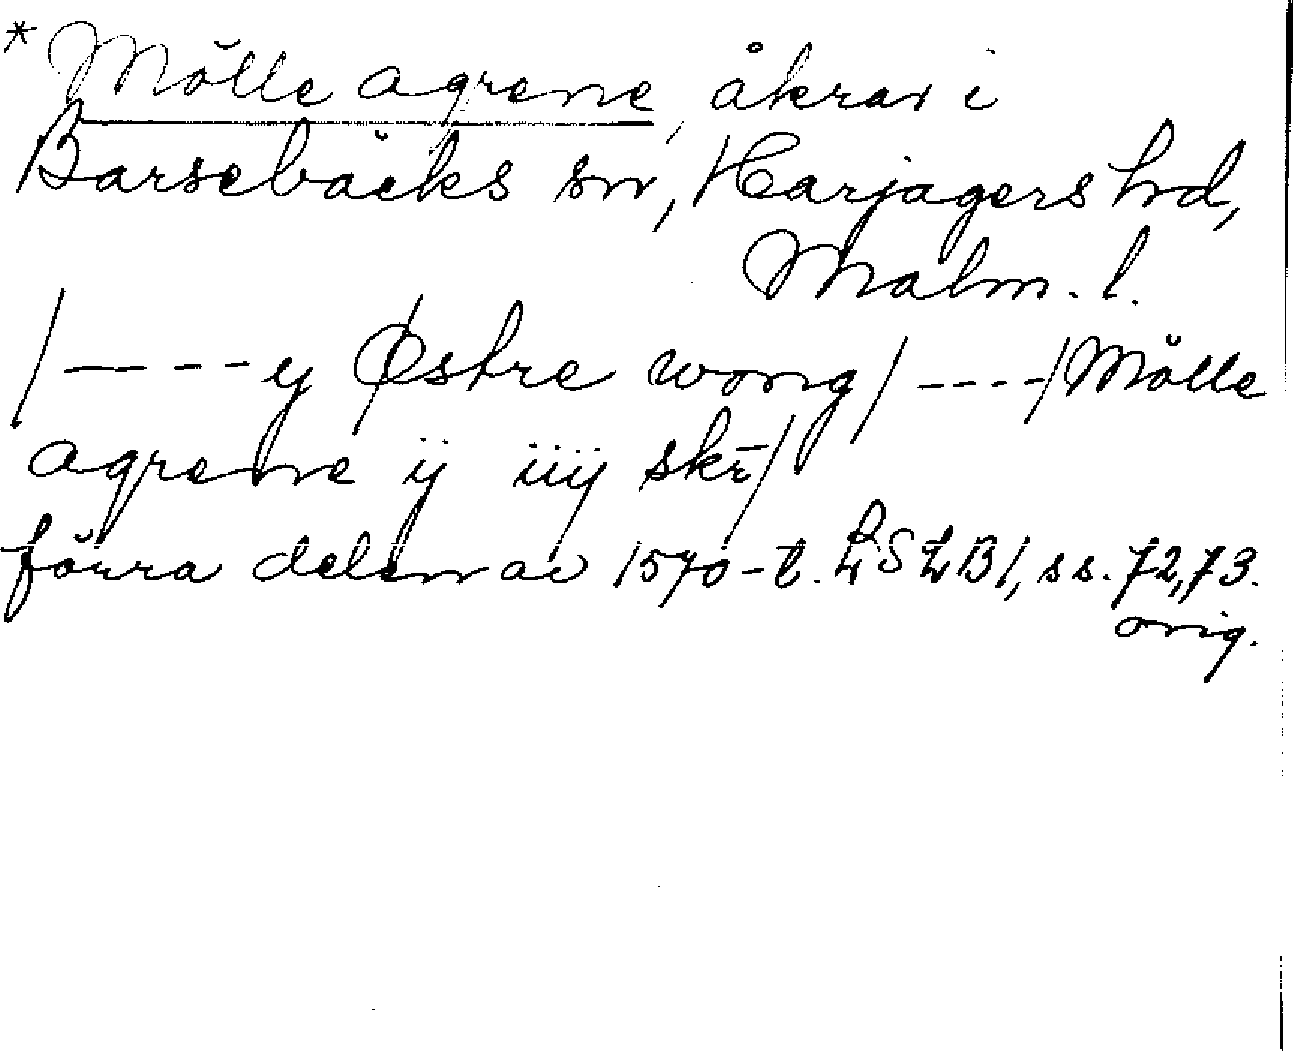 * Mölle agrene, åkrar i
Barsebäcks sn, Harjagers hd,
Malm. l.
/----y Østre wong/----/Mölle
agrene ij iiij skr̄/
förra delen av 1570-t. LSLB1, ss. 72,73.
orig.